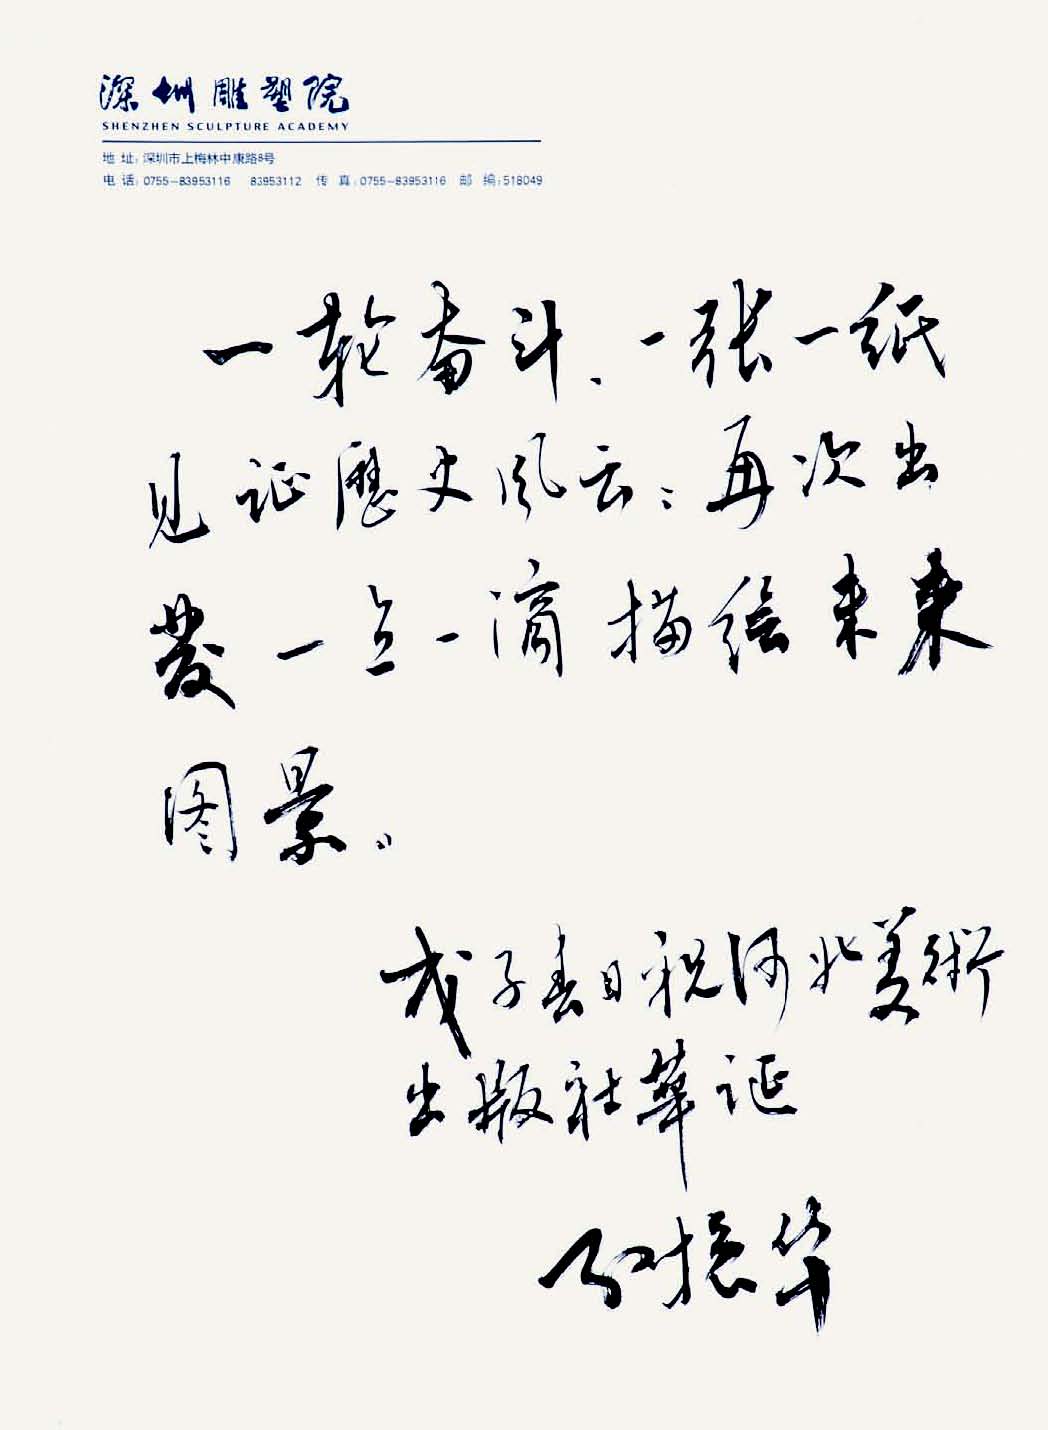 深圳雕塑院
SHENZHEN SCULPTURE ACADEMY
地 址：深圳市上梅林中康路8号
电 话：0755-83953116 83953112 传 真：0755-83953116 邮 编：518049
一轮奋斗、一张一纸
见证歷史风云；再次出
發一点一滴描绘未来
图景。
戊子春日祝河北美術
出版社華诞
孙振华